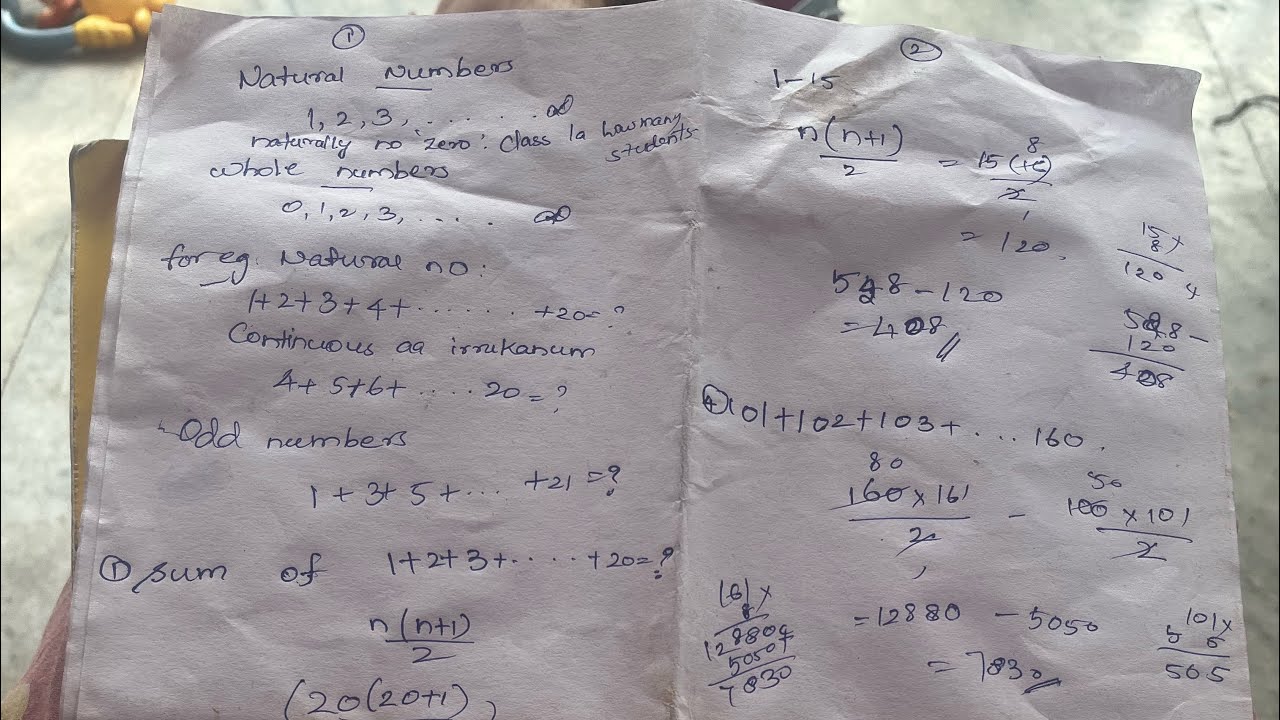 ①
Natural Numbers
1, 2, 3, . . . . . . ∞
naturally no zero: Class la how many
students
whole numbers
0, 1, 2, 3, . . . . . ∞
for eg. Natural no:
1+2+3+4+ . . . . . . +20=?
Continuous aa irrukanum
4+5+6+ . . . . 20=?
Odd numbers
1+3+5+ . . . +21=?
① Sum of 1+2+3+ . . . . . +20=?
n(n+1)
2
(20(20+1)
②
1-15
n(n+1)
2
8
= 15(16)
2
1
= 120.
15×
8
120
548-120
=408
120
408
④ 101+102+103+ . . . 160.
80
160×161
2
1
-
50
100×101
2
161×
8
12880
5050
7830
=12880 - 5050
101×
5
505
=7830